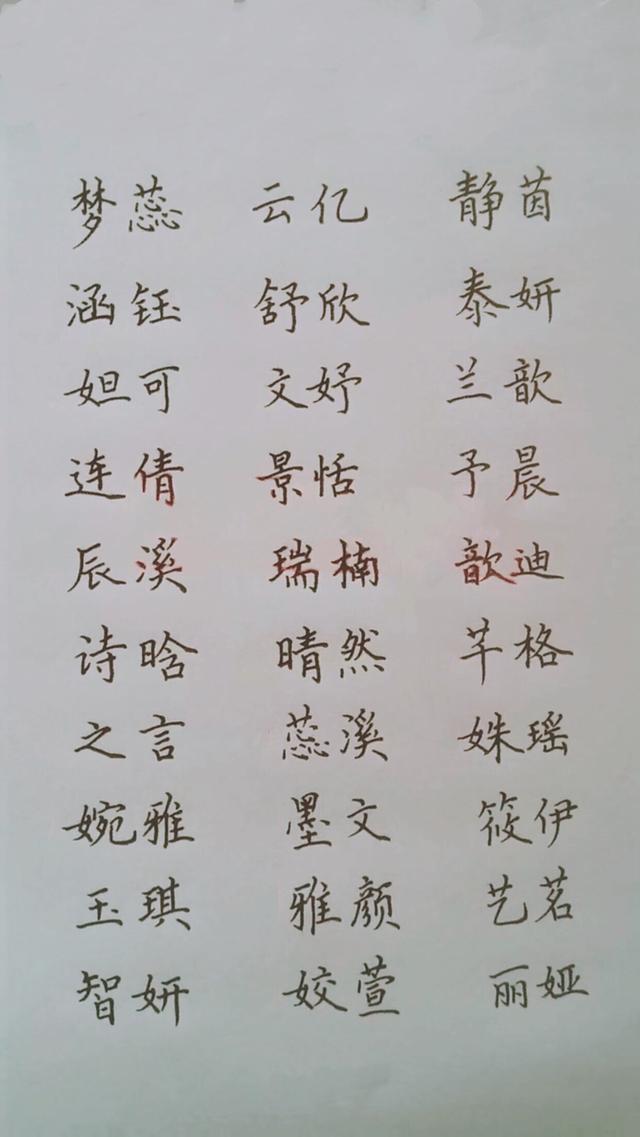 梦蕊 云亿 静茵
涵钰 舒欣 泰妍
妲可 文妤 兰歆
连倩 景恬 予晨
辰溪 瑞楠 歆迪
诗晗 晴然 芊格
之言 蕊溪 姝瑶
婉雅 墨文 筱伊
玉琪 雅颜 艺茗
智妍 姣萱 丽娅